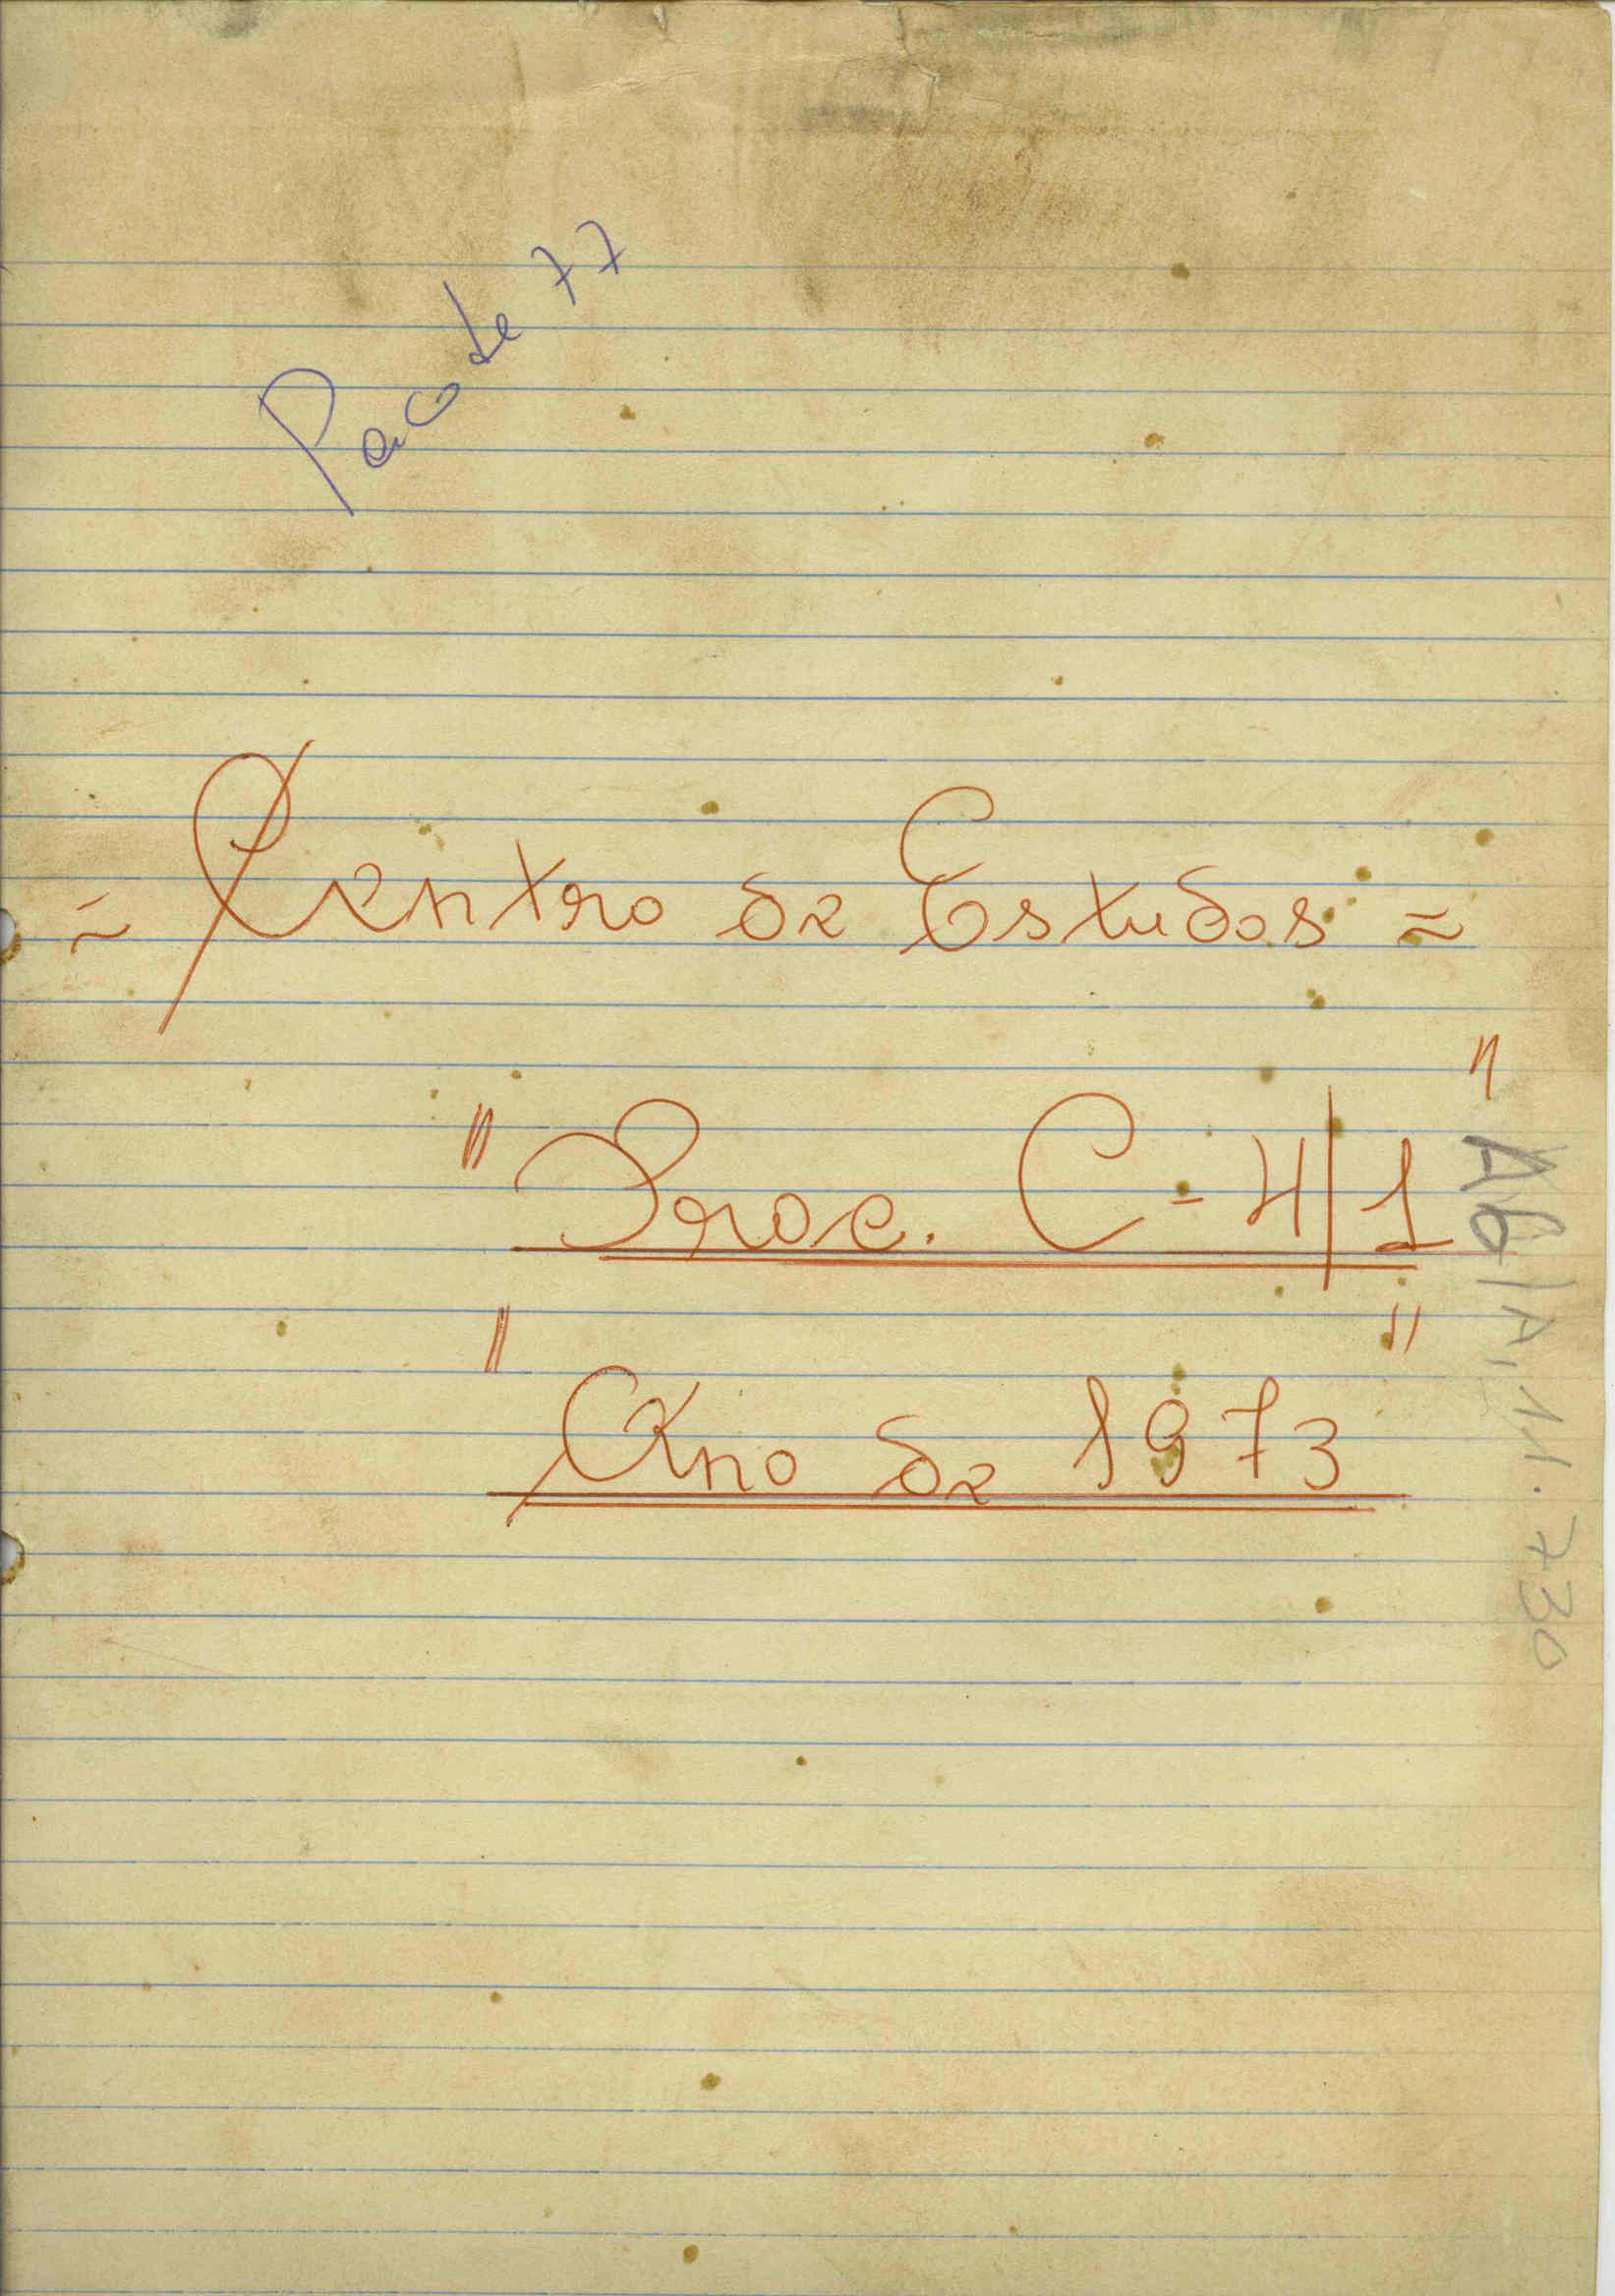 Paco te 77
= Centro de Estudos =
" Proc. C-4/1 "
" Ano de 1973 "
A6/A, 11.730